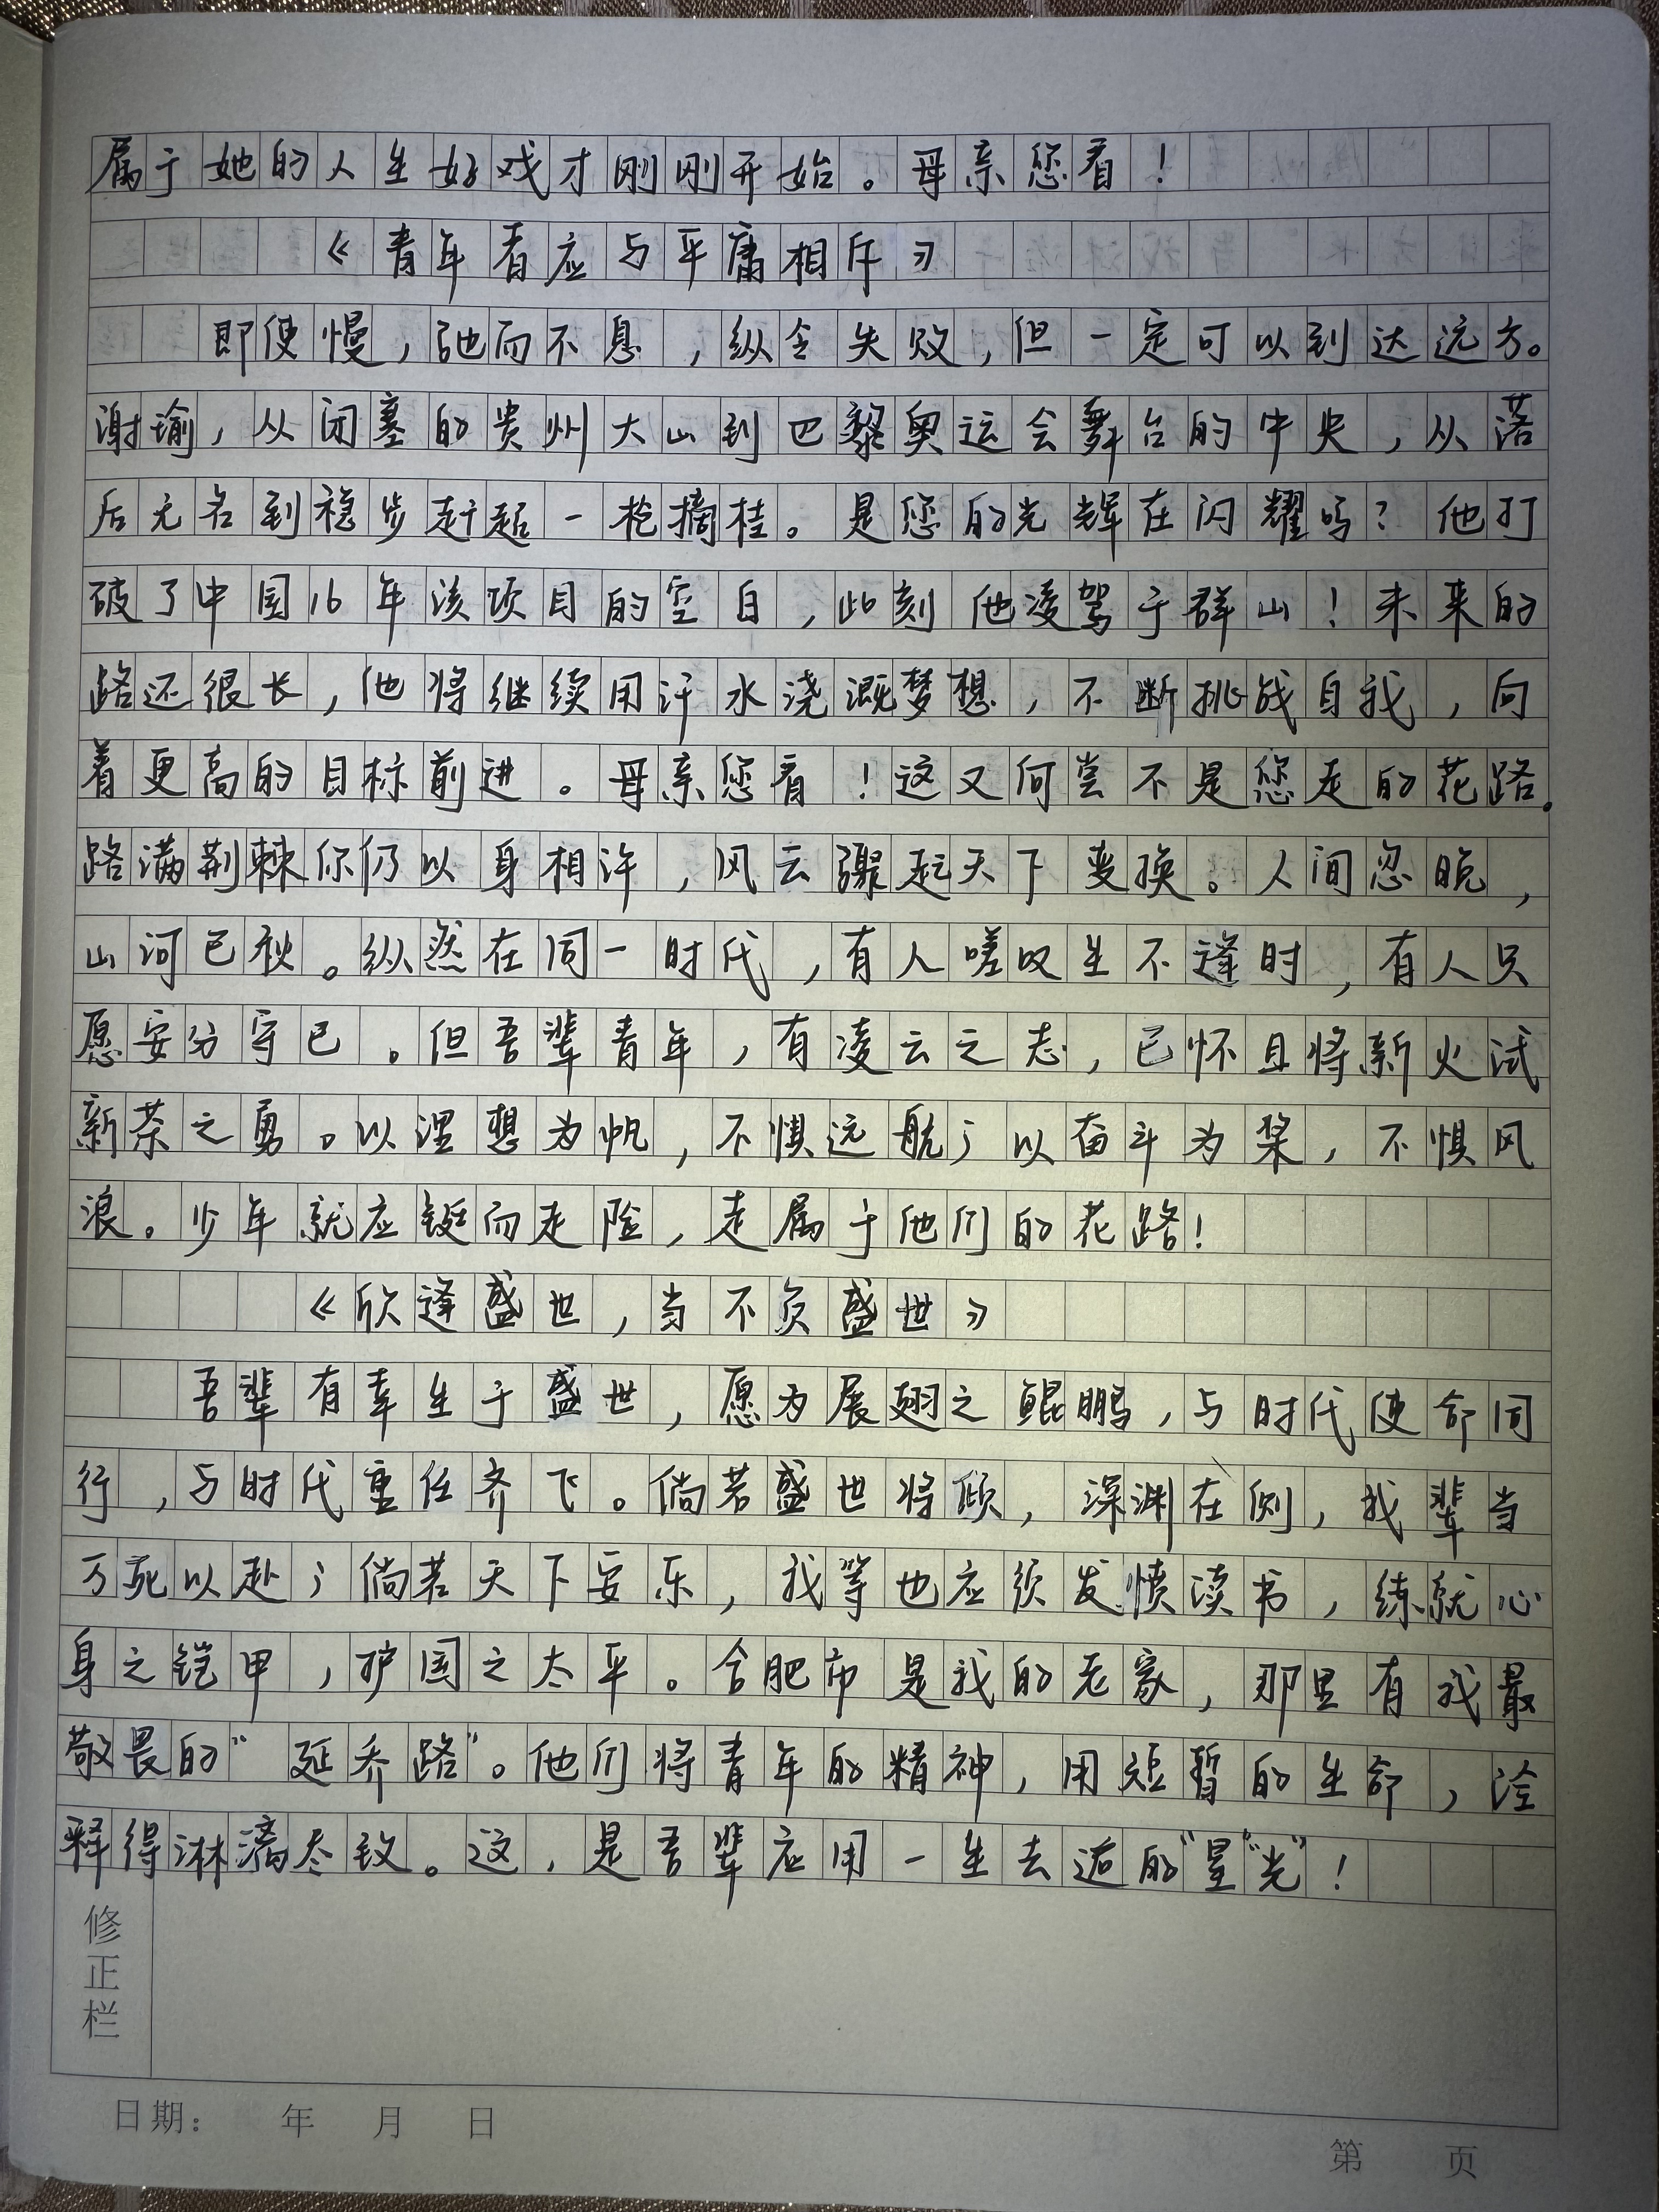 属于她的人生好戏才刚刚开始。母亲您看！
《青年看应与平庸相斥》
即使慢，弛而不息，纵令失败，但一定可以到达远方。
谢瑜，从闭塞的贵州大山到巴黎奥运会舞台的中央，从落
后无名到稳步赶超一枪摘桂。是您的光辉在闪耀吗？他打
破了中国16年该项目的空白，此刻他凌驾于群山！未来的
路还很长，他将继续用汗水浇溉梦想，不断挑战自我，向
着更高的目标前进。母亲您看！这又何尝不是您走的花路。
路满荆棘你仍以身相许，风云骤起天下变换。人间忽晚，
山河已秋。纵然在同一时代，有人嗟叹生不逢时，有人只
愿安分守已。但吾辈青年，有凌云之志，已怀且将新火试
新茶之勇。以理想为帆，不惧远航；以奋斗为桨，不惧风
浪。少年就应铤而走险，走属于他们的花路！
《欣逢盛世，当不负盛世》
吾辈有幸生于盛世，愿为展翅之鲲鹏，与时代使命同
行，与时代重任齐飞。倘若盛世将倾，深渊在侧，我辈当
万死以赴；倘若天下安乐，我等也应须发愤读书，练就心
身之铠甲，护国之太平。合肥市是我的老家，那里有我最
敬畏的“延乔路”。他们将青年的精神，用短暂的生命，诠
释得淋漓尽致。这，是吾辈应用一生去追的“星“光”！
修正栏
日期： 年 月 日
第 页